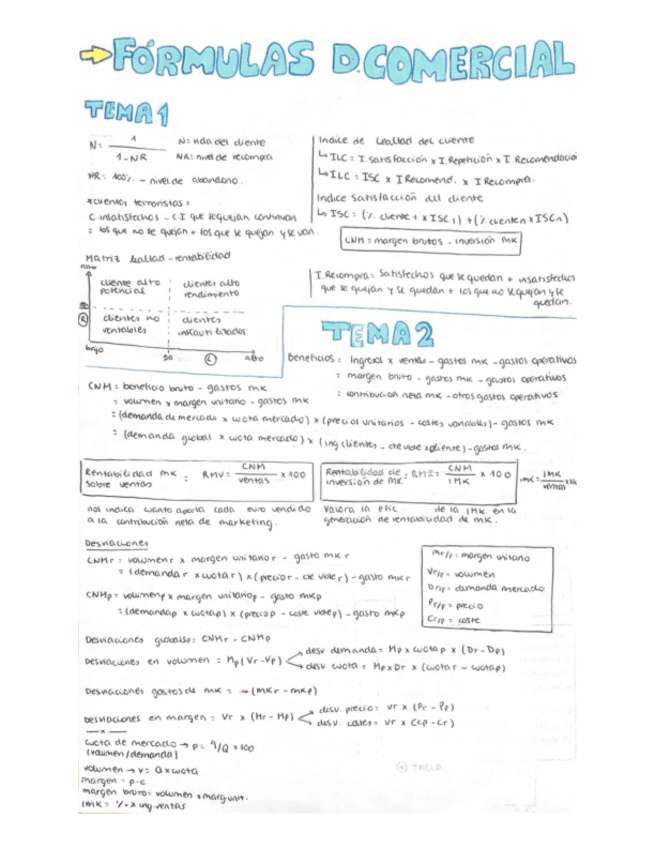 →FÓRMULAS D.COMERCIAL
TEMA 1
N = 1 / 1-NR
N: vida del cliente
NR: nivel de recompra
NR: 100% - nivel de abandono.
*clientes terroristas =
C. insatisfechos - C.I que se quejan continuan
= los que no se quejan + los que se quejan y se van.
Indice de Lealtad del cliente
↳ ILC = I. Satisfacción x I. Repetición x I. Recomendación
↳ ILC = ISC x I Recomend. x I Recompra.
Indice Satisfacción del cliente
↳ ISC = (% cliente 1 x ISC1) + (% clienten x ISCn)
CNM = margen brutos - inversión MK
Matriz lealtad - rentabilidad
alto
cliente alto potencial
clientes alto rendimiento
50
R
clientes no rentables
clientes infrautilizados
bajo
50
L
alto
I. Recompra = Satisfechos que se quedan + insatisfechos
que se quejan y se quedan + los que no se quejan y se
quedan.
TEMA 2
beneficios = Ingresos x ventas - gastos MK - gastos operativos
= margen bruto - gastos MK - gastos operativos
= contribución neta MK - otros gastos operativos
CNM = beneficio bruto - gastos MK
= volumen x margen unitario - gastos MK
= (demanda de mercado x cuota mercado) x (precios unitarios - costes variables) - gastos MK
= (demanda global x cuota mercado) x (ing clientes - cte vble xcliente) - gastos MK.
Rentabilidad MK sobre ventas = RMV = CNM / ventas x 100
Rentabilidad de inversión de MK = RMI = CNM / IMK x 100
IMK = IMK / ventas
nos indica cuanto aporta cada euro vendido
a la contribución neta de marketing.
Valora la efic de la IMK en la
generación de rentabilidad de MK.
Desviaciones
CNMr = volumenr x margen unitarior - gasto MKr
= (demandar x cuotar) x (precior - cte vbler) - gasto MKr
CNMp = volumenp x margen unitariop - gasto MKp
= (demandap x cuotap) x (preciop - coste vblep) - gasto MKp
Mr/p = margen unitario
Vr/p = volumen
Dr/p = demanda mercado
Pr/p = precio
Cr/p = coste
Desviaciones globales = CNMr - CNMp
Desviaciones en volumen = Mp (Vr - Vp)
desv demanda = Mp x cuotap x (Dr - Dp)
desv. cuota = Mp x Dr x (cuotar - cuotap)
Desviaciones gastos de MK = - (MKr - MKp)
Desviaciones en margen = Vr x (Mr - Mp)
desv. precio = Vr x (Pr - Pp)
desv. costes = Vr x (Cp - Cr)
cuota de mercado → p = q/Q x 100
(volumen/demanda)
volumen → V = Q x cuota
margen = p - c
margen bruto = volumen x marg unit.
IMK = % x ing. ventas
TABLA